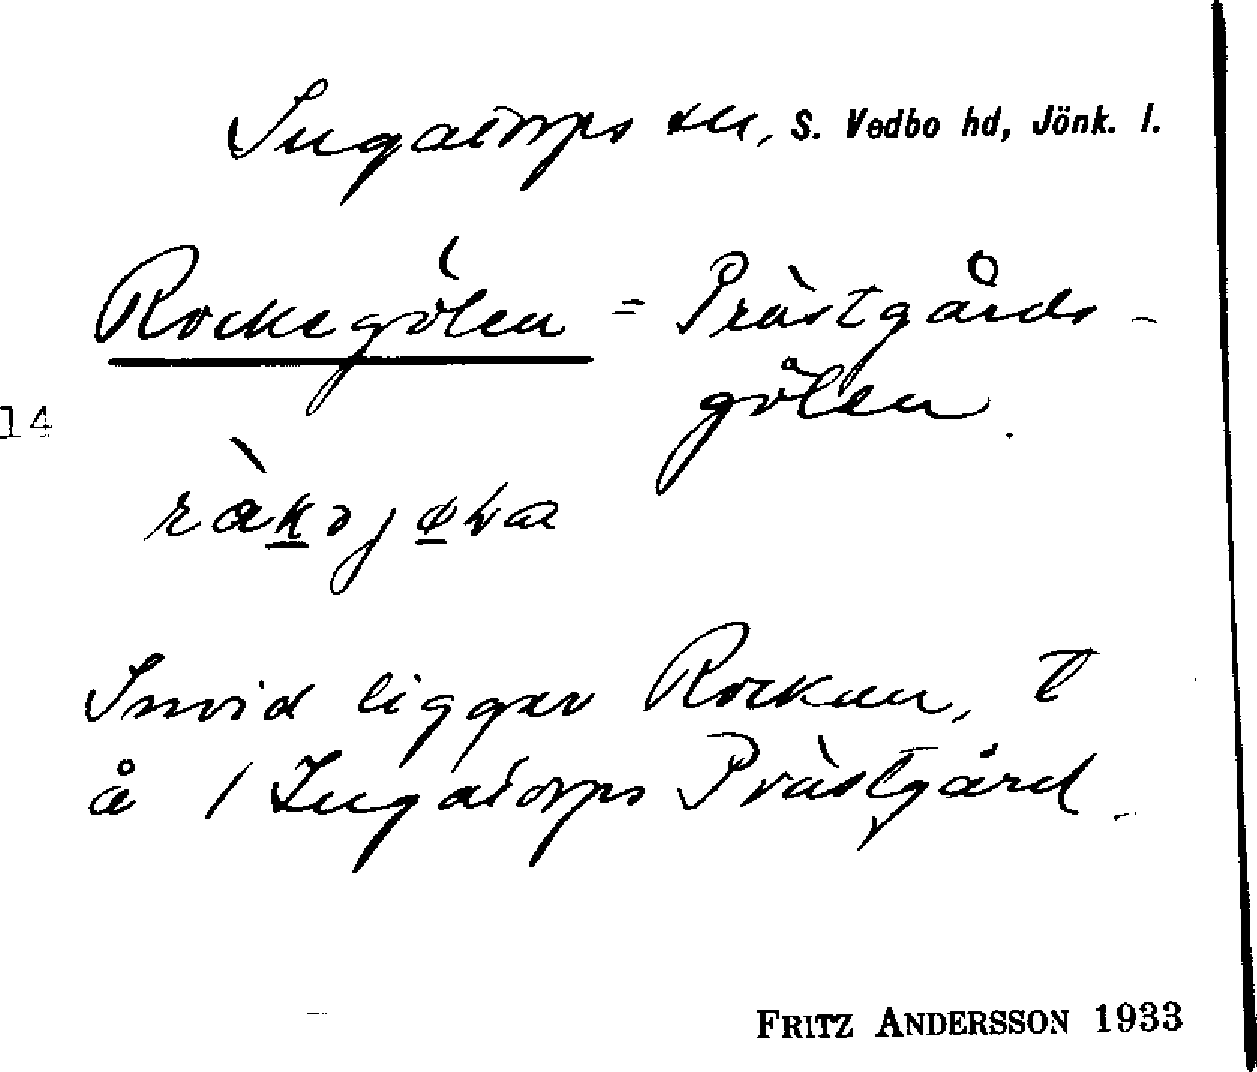 Ingatorps sn, S. Vedbo hd, Jönk. l.
Rockegölen = Prästgårds-
gölen.
14
Invid ligger Rocken, t
å 1 Ingatorps Prästgård.
FRITZ ANDERSSON 1933